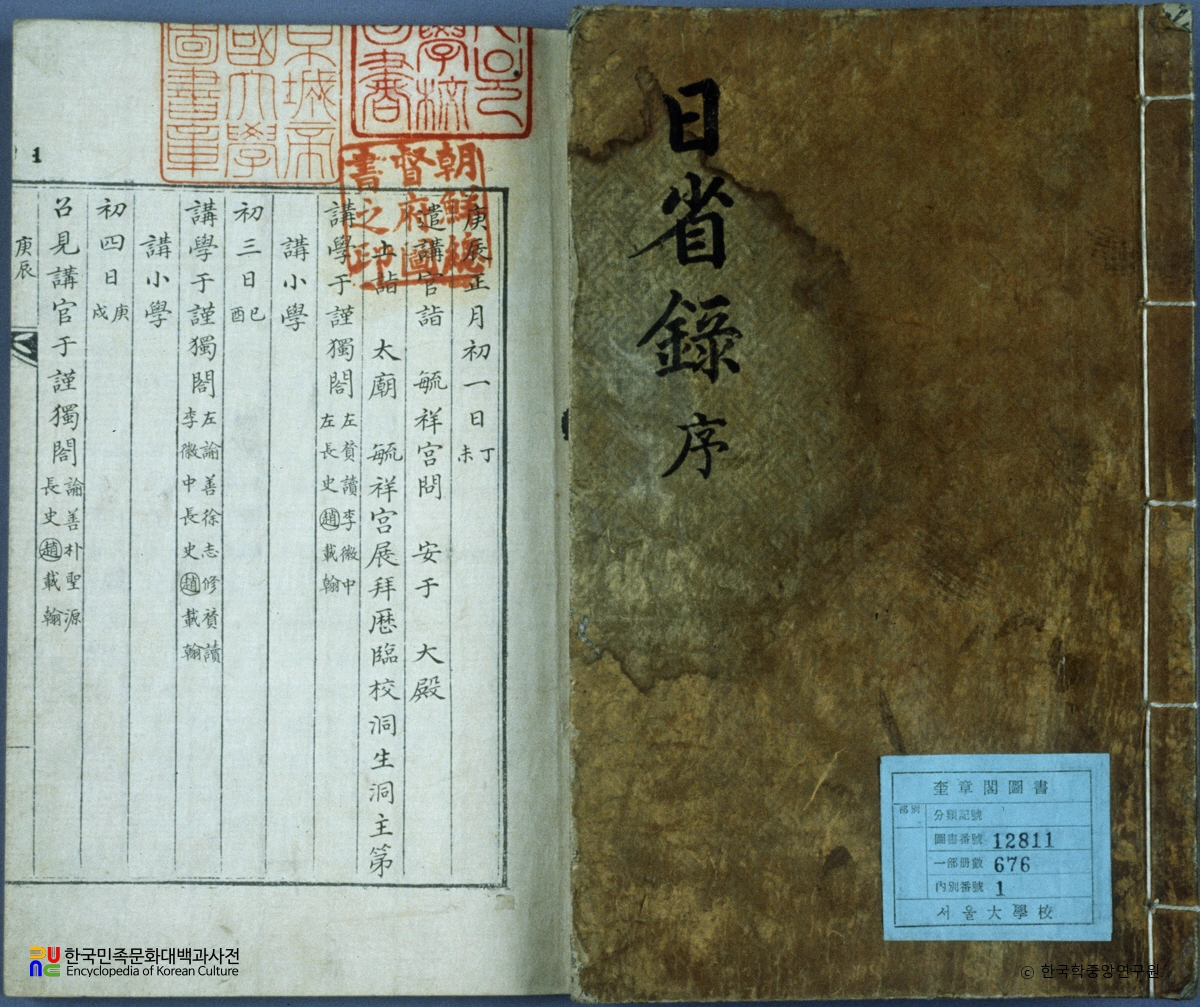 日省錄 序
奎章閣圖書
部別
分類記號
圖書番號 12811
一部册數 676
內別番號 1
서울大學校
京城帝
國大學
圖書章
學校
朝鮮總
督府圖
書之印
1
庚辰正月初一日 丁未
遣講官詣 毓祥宮問 安于 大殿
上詣 太廟 毓祥宮展拜歷臨校洞生洞主第
講學于謹獨閤 左賛讀李徽中 左長史趙載翰
講小學
初三日 己酉
講學于謹獨閤 左諭善徐志修賛讀 李徽中長史趙載翰
講小學
初四日 庚戌
召見講官于謹獨閤 諭善朴聖源 長史趙載翰
庚辰
한국민족문화대백과사전
Encyclopedia of Korean Culture
© 한국학중앙연구원